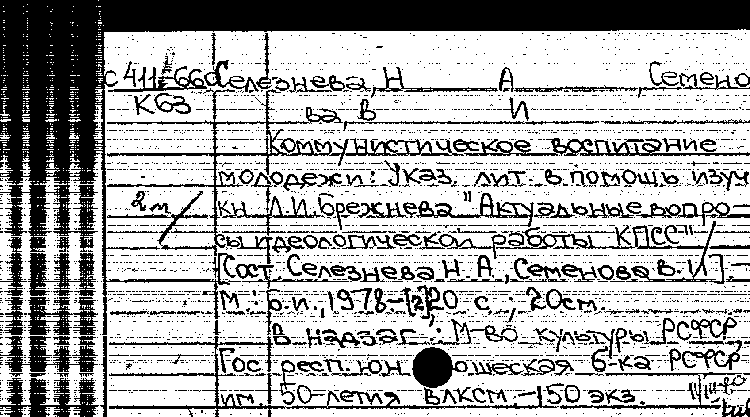 С 411-660 Селезнева, Н А , Семено
К63 ва, В И
Коммунистическое воспитание
молодежи: Указ. лит. в помощь изуч
2м кн. Л.И. Брежнева "Актуальные вопро-
сы идеологической работы КПСС"
[Сост. Селезнева Н. А., Семенова В. И].-
М.: б.и., 1978-[2]20 с.; 20см.
В надзаг.: М-во культуры РСФСР,
Гос респ. юн ошеская б-ка РСФСР
им. 50-летия ВЛКСМ.-150 экз.